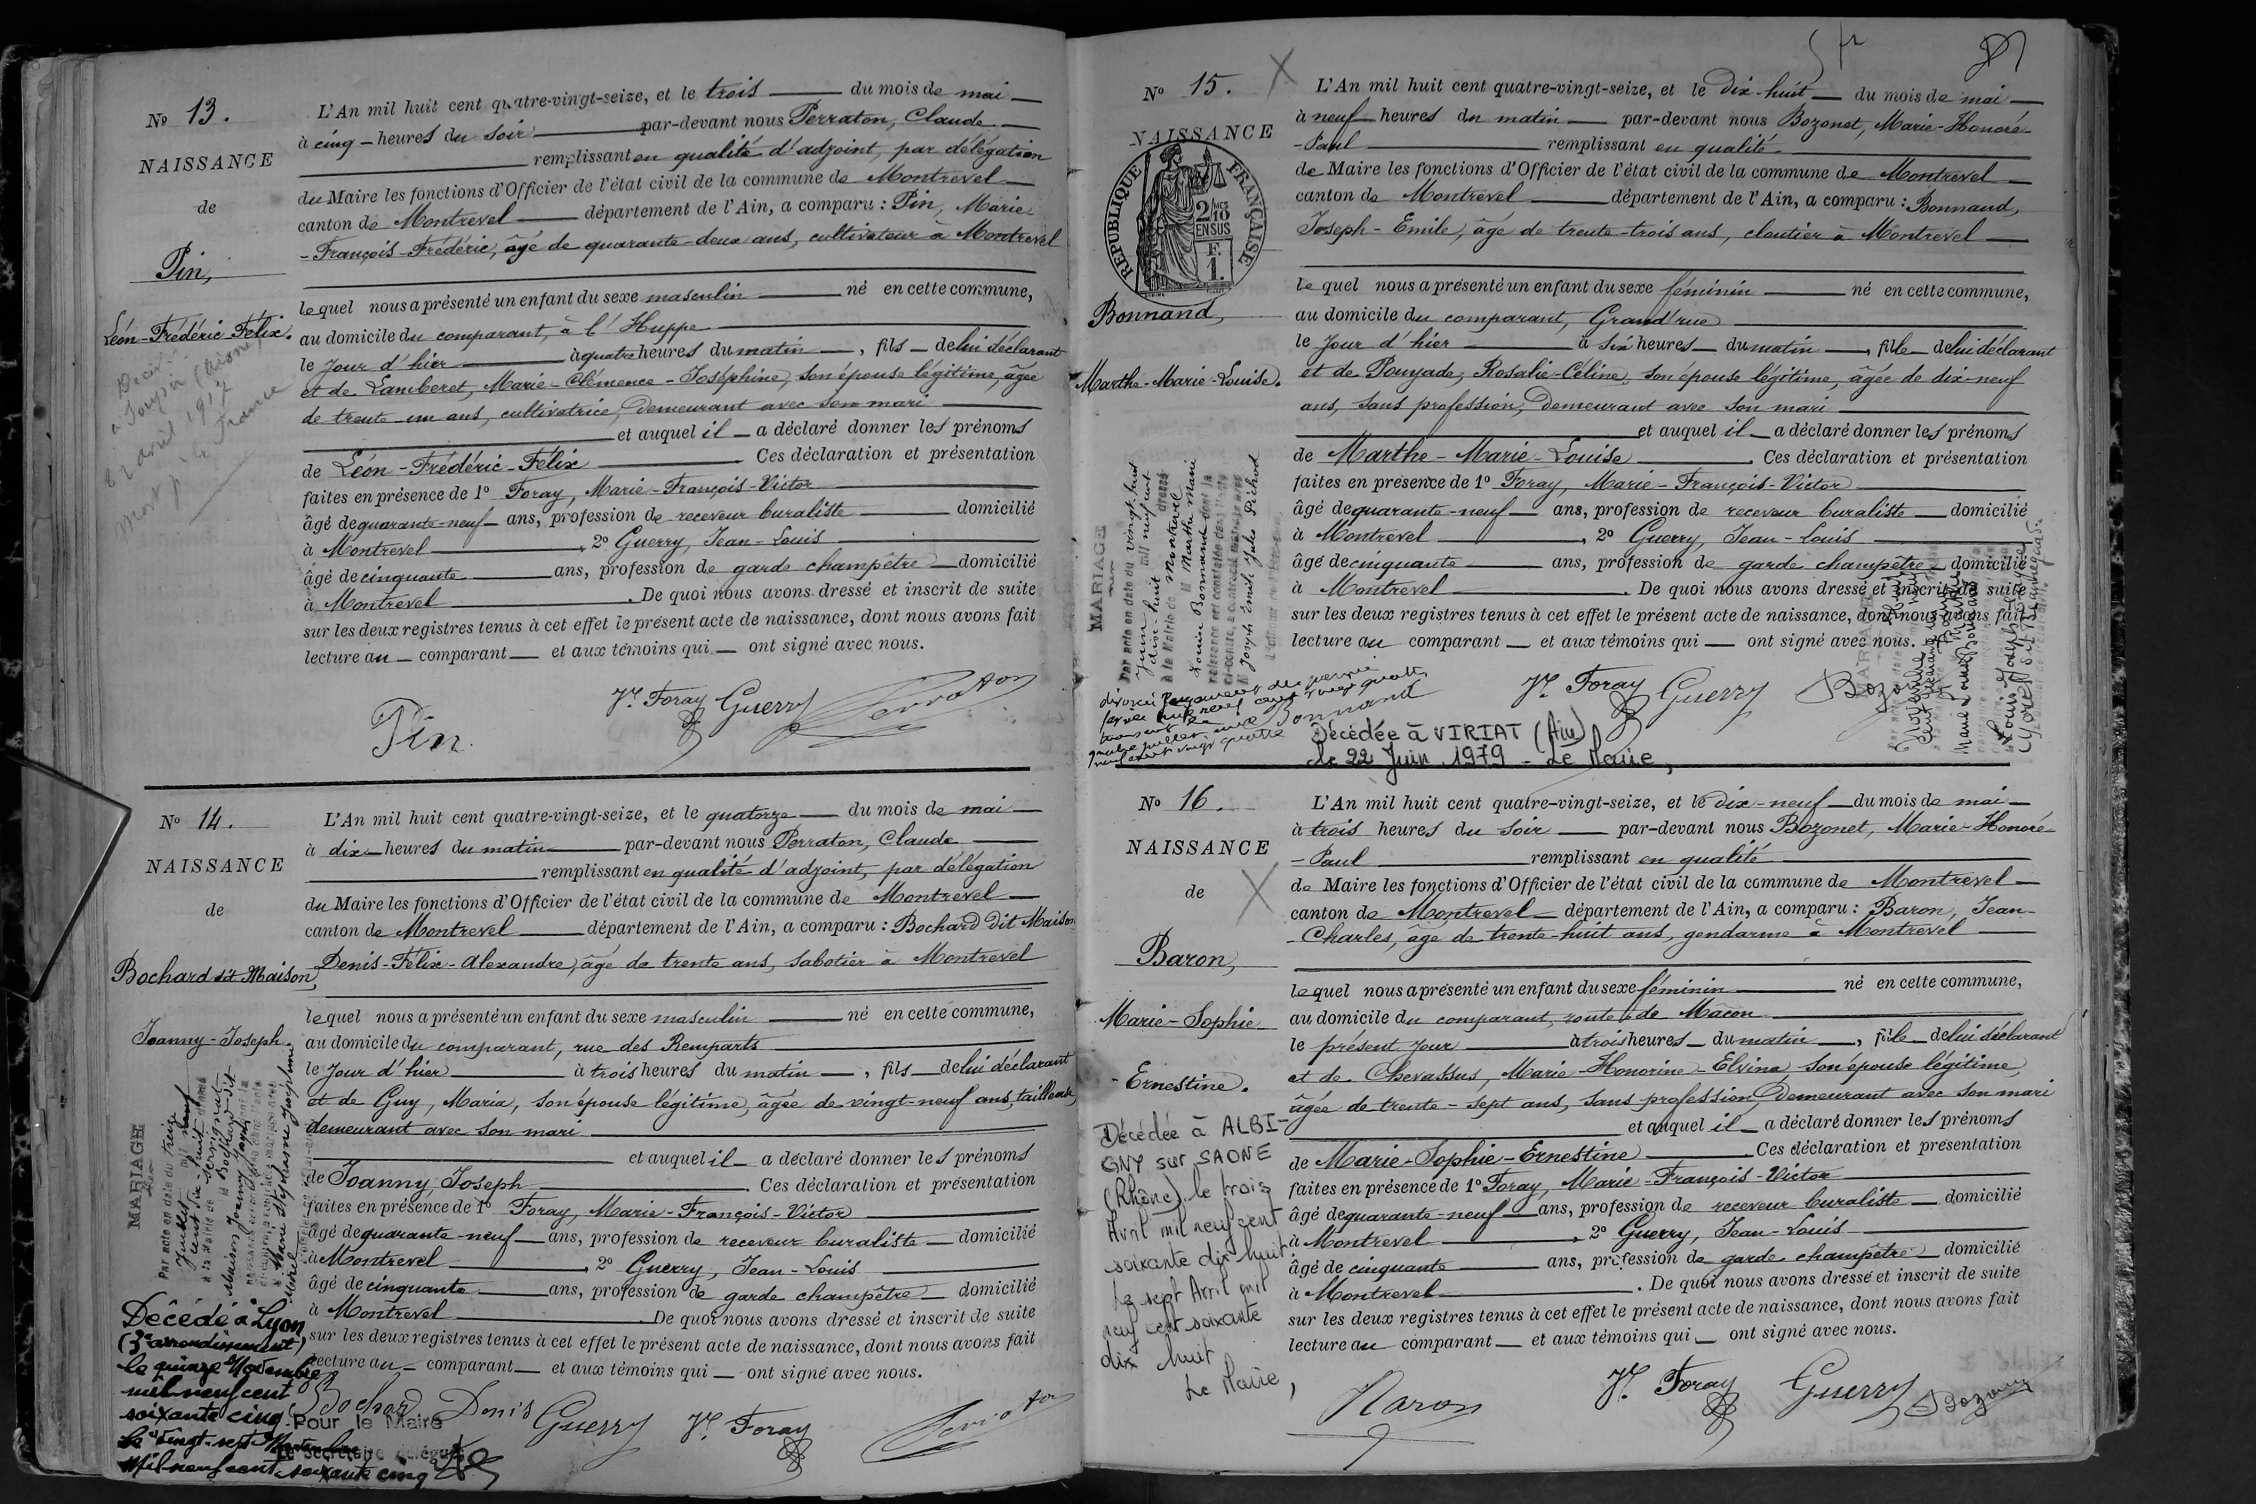 No 13.
NAISSANCE
de
Pin,
Léon-Frédéric-Félix.
L'An mil huit cent quatre-vingt-seize, et le trois du mois de mai
à cinq heures du soir par-devant nous Perraton, Claude
remplissant en qualité d'adjoint, par délégation
du Maire les fonctions d'Officier de l'état civil de la commune de Montrevel
canton de Montrevel département de l'Ain, a comparu : Pin, Marie-
-François-Frédéric, âgé de quarante-deux ans, cultivateur à Montrevel
lequel nous a présenté un enfant du sexe masculin né en cette commune,
au domicile du comparant, à l'Huppe
le jour d'hier à quatre heures du matin, fils de lui déclarant
et de Lamberet, Marie-Clémence-Joséphine, son épouse légitime, âgée
de trente-un ans, cultivatrice, demeurant avec son mari
et auquel il a déclaré donner les prénoms
de Léon-Frédéric-Félix Ces déclaration et présentation
faites en présence de 1o Foray, Marie-François-Victor
âgé de quarante-neuf ans, profession de receveur buraliste domicilié
à Montrevel, 2o Guerry, Jean-Louis
âgé de cinquante ans, profession de garde champêtre domicilié
à Montrevel. De quoi nous avons dressé et inscrit de suite
sur les deux registres tenus à cet effet le présent acte de naissance, dont nous avons fait
lecture au comparant et aux témoins qui ont signé avec nous.
Pin
Vr Foray Guerry Perraton
No 14.
NAISSANCE
de
Bochard dit Maison,
Joanny-Joseph.
L'An mil huit cent quatre-vingt-seize, et le quatorze du mois de mai
à dix heures du matin par-devant nous Perraton, Claude
remplissant en qualité d'adjoint, par délégation
du Maire les fonctions d'Officier de l'état civil de la commune de Montrevel
canton de Montrevel département de l'Ain, a comparu : Bochard dit Maison
Denis-Félix-Alexandre, âgé de trente ans, sabotier à Montrevel
lequel nous a présenté un enfant du sexe masculin né en cette commune,
au domicile du comparant, rue des Remparts
le jour d'hier à trois heures du matin, fils de lui déclarant
et de Guy, Maria, son épouse légitime, âgée de vingt-neuf ans, tailleuse,
demeurant avec son mari
et auquel il a déclaré donner les prénoms
de Joanny, Joseph. Ces déclaration et présentation
faites en présence de 1o Foray, Marie-François-Victor
âgé de quarante-neuf ans, profession de receveur buraliste domicilié
à Montrevel, 2o Guerry, Jean-Louis
âgé de cinquante ans, profession de garde champêtre domicilié
à Montrevel De quoi nous avons dressé et inscrit de suite
sur les deux registres tenus à cet effet le présent acte de naissance, dont nous avons fait
lecture au comparant et aux témoins qui ont signé avec nous.
Bochard Denis Guerry Vr Foray Perraton
MARIAGE
Par acte en date du treize
Décédé à Lyon
(3e arrondissement)
le quinze Novembre
mil neuf cent
soixante cinq
Pour le Maire
Le vingt-sept Novembre
mil neuf cent soixante cinq
No 15.
NAISSANCE
REPUBLIQUE FRANÇAISE
2/10
EN SUS
F.
1.
Bonnand,
Marthe-Marie-Louise.
L'An mil huit cent quatre-vingt-seize, et le dix-huit du mois de mai
à neuf heures du matin par-devant nous Bozonet, Marie-Honoré-
-Paul remplissant en qualité
de Maire les fonctions d'Officier de l'état civil de la commune de Montrevel
canton de Montrevel département de l'Ain, a comparu : Bonnand,
Joseph-Emile, âgé de trente-trois ans, cloutier à Montrevel
lequel nous a présenté un enfant du sexe féminin né en cette commune,
au domicile du comparant, Grand'rue
le jour d'hier à six heures du matin, fille de lui déclarant
et de Pouyade, Rosalie-Céline, son épouse légitime, âgée de dix-neuf
ans, sans profession, demeurant avec son mari
et auquel il a déclaré donner les prénoms
de Marthe-Marie-Louise. Ces déclaration et présentation
faites en présence de 1o Foray, Marie-François-Victor
âgé de quarante-neuf ans, profession de receveur buraliste domicilié
à Montrevel, 2o Guerry, Jean-Louis
âgé de cinquante ans, profession de garde champêtre domicilié
à Montrevel. De quoi nous avons dressé et inscrit de suite
sur les deux registres tenus à cet effet le présent acte de naissance, dont nous avons fait
lecture au comparant et aux témoins qui ont signé avec nous.
Vr Foray Guerry Bozonet
MARIAGE
Par acte en date du vingt-huit
Décédée à VIRIAT (Ain)
le 22 Juin 1979 - Le Maire,
No 16.
NAISSANCE
de
Baron,
Marie-Sophie
-Ernestine.
L'An mil huit cent quatre-vingt-seize, et le dix-neuf du mois de mai
à trois heures du soir par-devant nous Bozonet, Marie-Honoré-
-Paul remplissant en qualité
de Maire les fonctions d'Officier de l'état civil de la commune de Montrevel
canton de Montrevel département de l'Ain, a comparu : Baron, Jean-
-Charles, âgé de trente-huit ans, gendarme à Montrevel
lequel nous a présenté un enfant du sexe féminin né en cette commune,
au domicile du comparant, route de Mâcon
le présent jour à trois heures du matin, fille de lui déclarant
et de Chevassus, Marie-Honorine-Elvina, son épouse légitime,
âgée de trente-sept ans, sans profession, demeurant avec son mari
et auquel il a déclaré donner les prénoms
de Marie-Sophie-Ernestine Ces déclaration et présentation
faites en présence de 1o Foray, Marie-François-Victor
âgé de quarante-neuf ans, profession de receveur buraliste domicilié
à Montrevel, 2o Guerry, Jean-Louis
âgé de cinquante ans, profession de garde champêtre domicilié
à Montrevel. De quoi nous avons dressé et inscrit de suite
sur les deux registres tenus à cet effet le présent acte de naissance, dont nous avons fait
lecture au comparant et aux témoins qui ont signé avec nous.
Baron Vr Foray Guerry Bozonet
Décédée à ALBI-
GNY sur SAONE
(Rhône) le trois
Avril mil neuf cent
soixante dix huit
Le sept Avril mil
neuf cent soixante
dix huit
Le Maire,